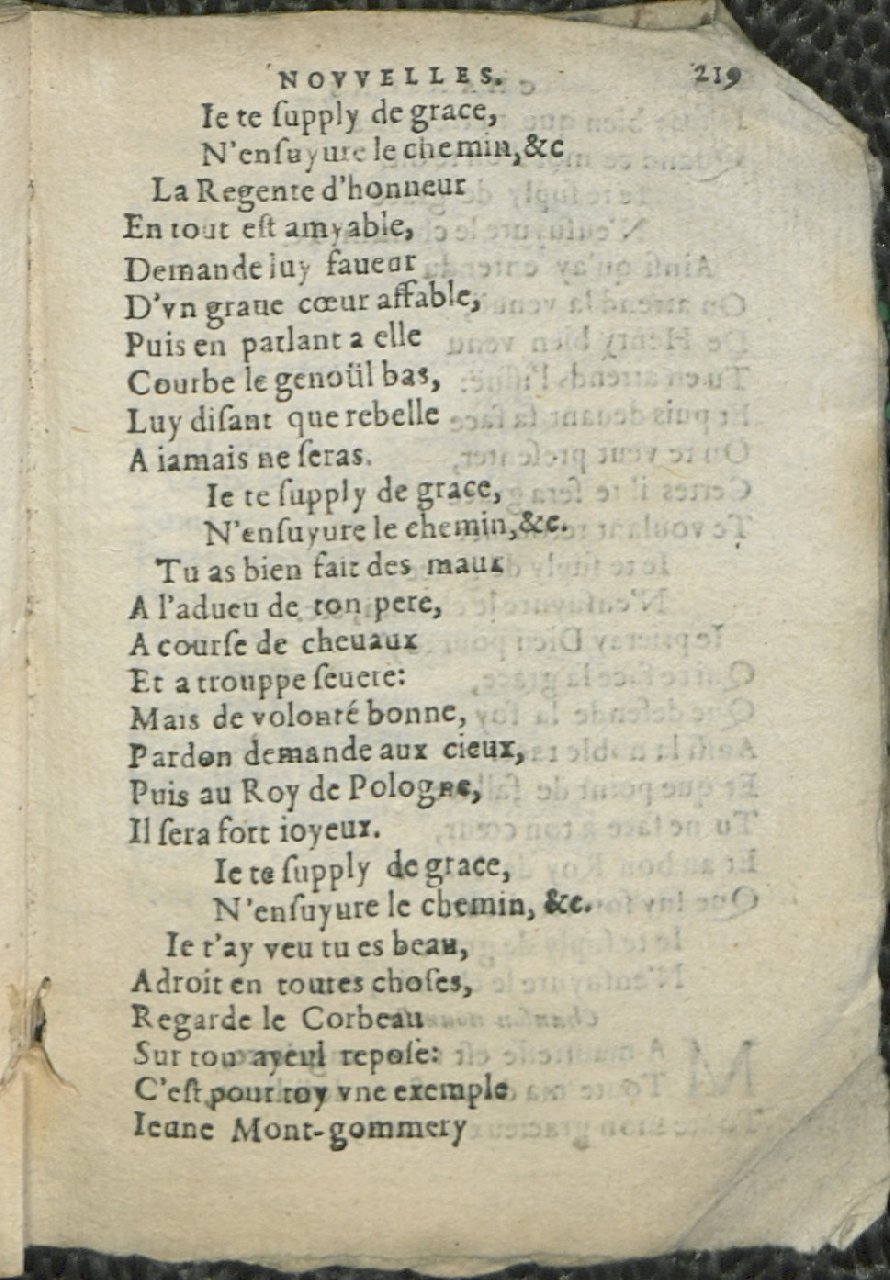 NOVVELLES. 219
Ie te ſupply de grace,
N'enſuyure le chemin,&c
La Regente d'honneur
En tout eſt amyable,
Demande luy faueur
D'vn graue cœur affable,
Puis en parlant a elle
Courbe le genoüil bas,
Luy diſant que rebelle
A iamais ne ſeras.
Ie te ſupply de grace,
N'enſuyure le chemin,&c.
Tu as bien fait des maux
A l'adueu de ton pere,
A courſe de cheuaux
Et a trouppe ſeuere:
Mais de volonté bonne,
Pardon demande aux cieux,
Puis au Roy de Pologne,
Il ſera fort ioyeux.
Ie te ſupply de grace,
N'enſuyure le chemin, &c.
Ie t'ay veu tu es beau,
Adroit en toutes choſes,
Regarde le Corbeau
Sur ton ayeul repoſe:
C'eſt pour toy vne exemple
Ieune Mont-gommery